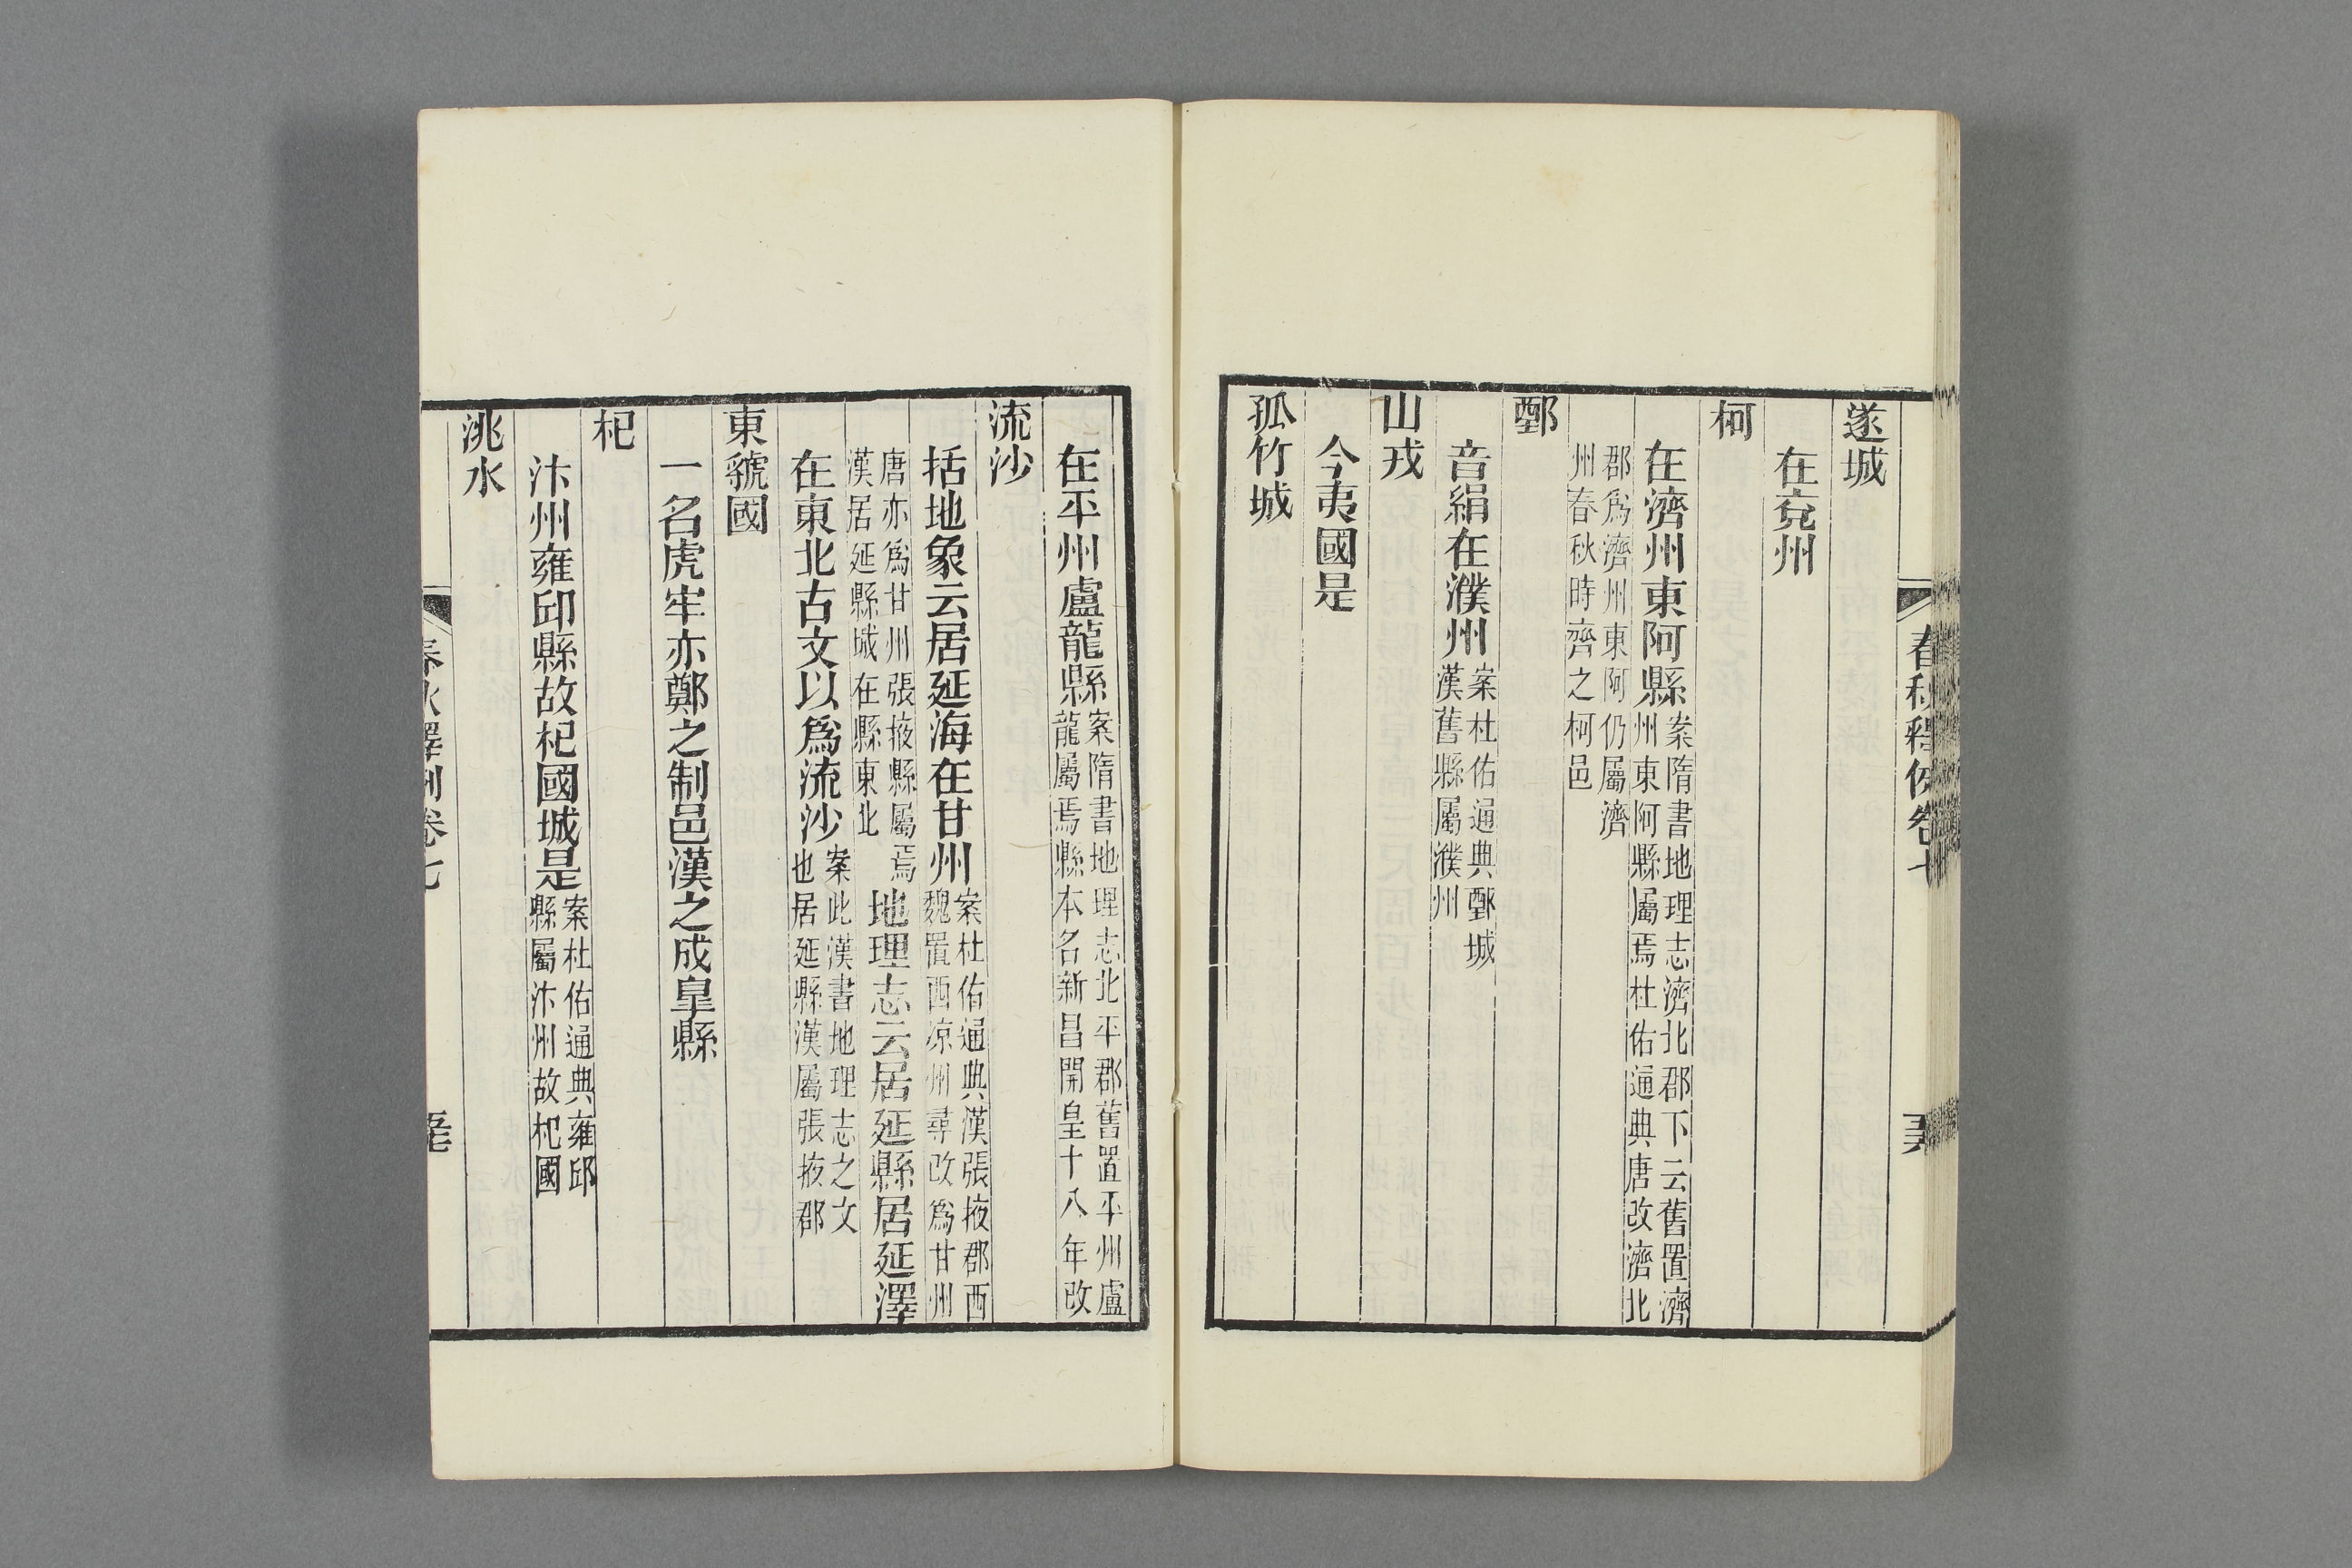 遂城
在兖州
柯
在濟州東阿縣案隋書地理志濟北郡下云舊置濟州東阿縣屬焉杜佑通典唐改濟北
郡爲濟州東阿仍屬濟州春秋時齊之柯邑
鄄
音絹在濮州案杜佑通典鄄城漢舊縣屬濮州
山戎
今夷國是
孤竹城
在平州盧龍縣案隋書地理志北平郡舊置平州盧龍屬焉縣本名新昌開皇十八年改
流沙
括地象云居延海在甘州案杜佑通典漢張掖郡西魏置西凉州尋改爲甘州
唐亦爲甘州張掖縣屬焉漢居延縣城在縣東北地理志云居延縣居延澤
在東北古文以爲流沙案此漢書地理志之文也居延縣漢屬張掖郡
東虢國
一名虎牢亦鄭之制邑漢之成皇縣
杞
汴州雍邱縣故杞國城是案杜佑通典雍邱縣屬汴州故杞國
洮水
春秋釋例卷七